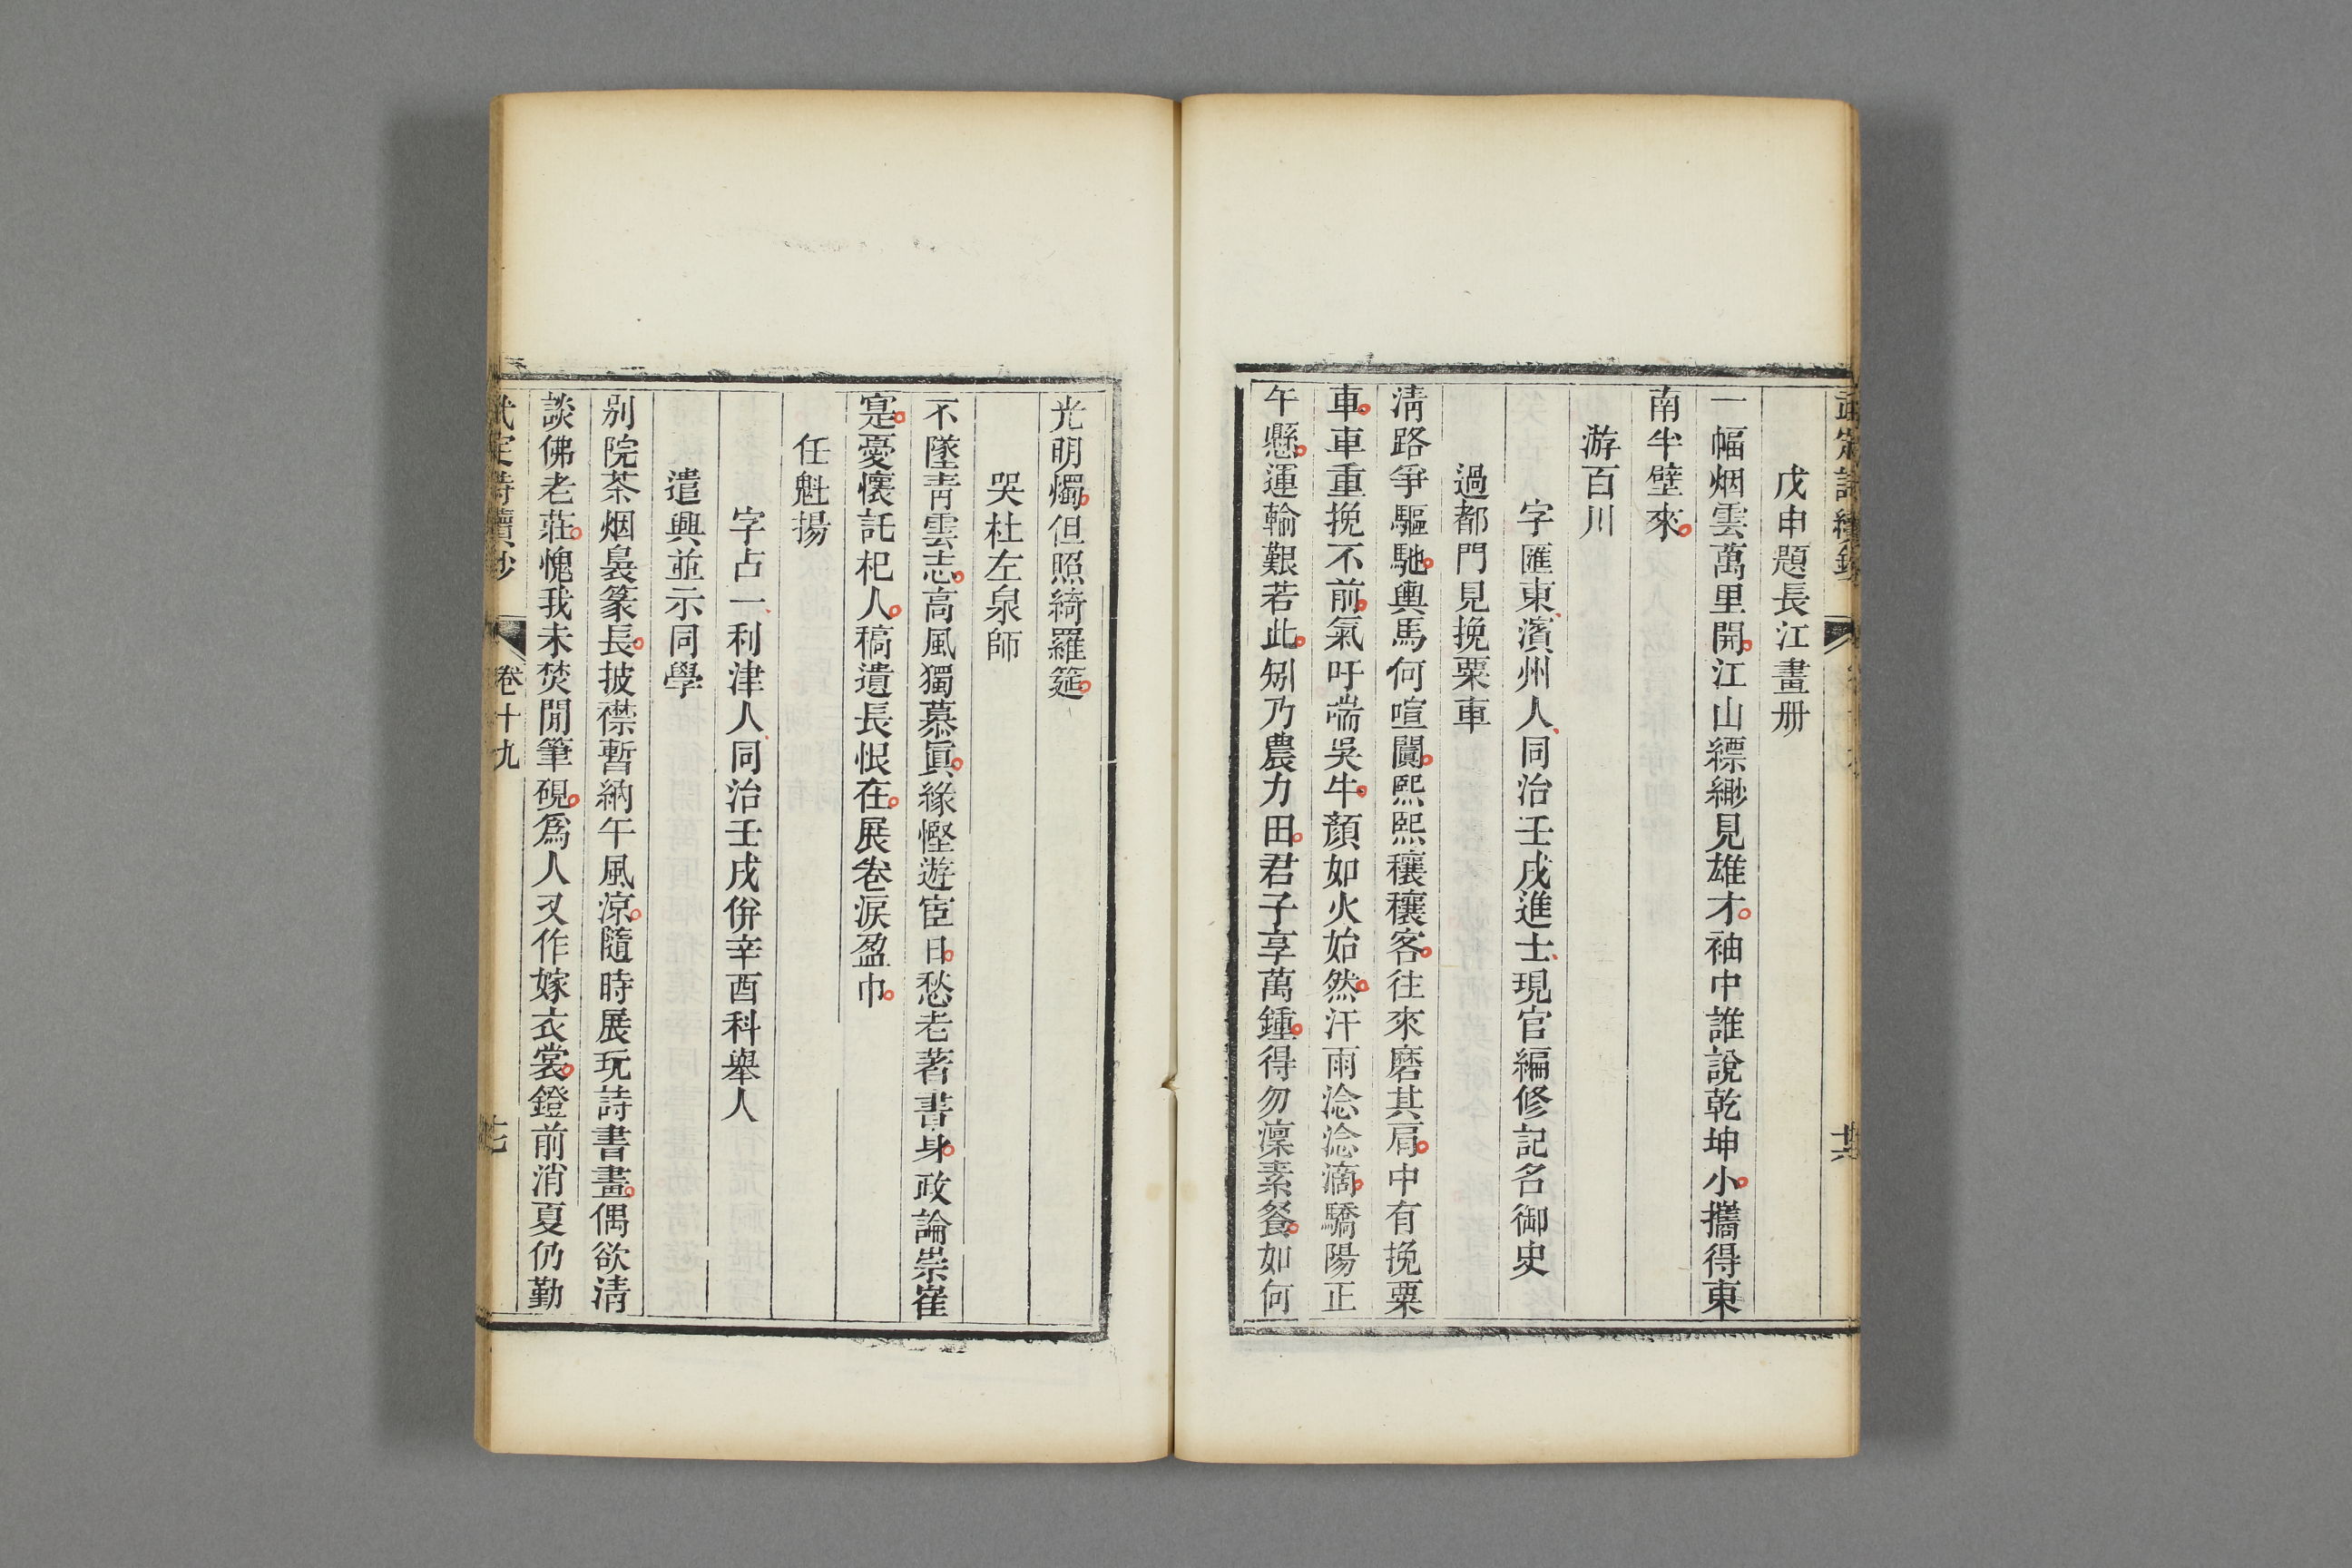 武定詩續鈔
十六
戊申題長江畫册
一幅烟雲萬里開江山縹緲見雄才袖中誰說乾坤小攜得東
南半壁來
游百川
字匯東濱州人同治壬戌進士現官編修記名御史
過都門見挽粟車
淸路爭驅馳輿馬何喧闐熙熙穰穰客往來磨其肩中有挽粟
車車重挽不前氣吁喘吳牛顏如火始然汗雨淰淰滴驕陽正
午懸運輪艱若此矧乃農力田君子享萬鍾得勿凜素餐如何
光明燭但照綺羅筵
哭杜左泉師
不墜靑雲志高風獨慕眞緣慳遊宦日愁老著書身政論崇崔
寔憂懷託杞人稿遺長恨在展卷淚盈巾
任魁揚
字占一利津人同治壬戌併辛酉科舉人
遣興並示同學
别院茶烟裊篆長披襟暫納午風涼隨時展玩詩書畫偶欲淸
談佛老莊愧我未焚閒筆硯爲人又作嫁衣裳鐙前消夏仍勤
武定詩續鈔
卷十九
十七